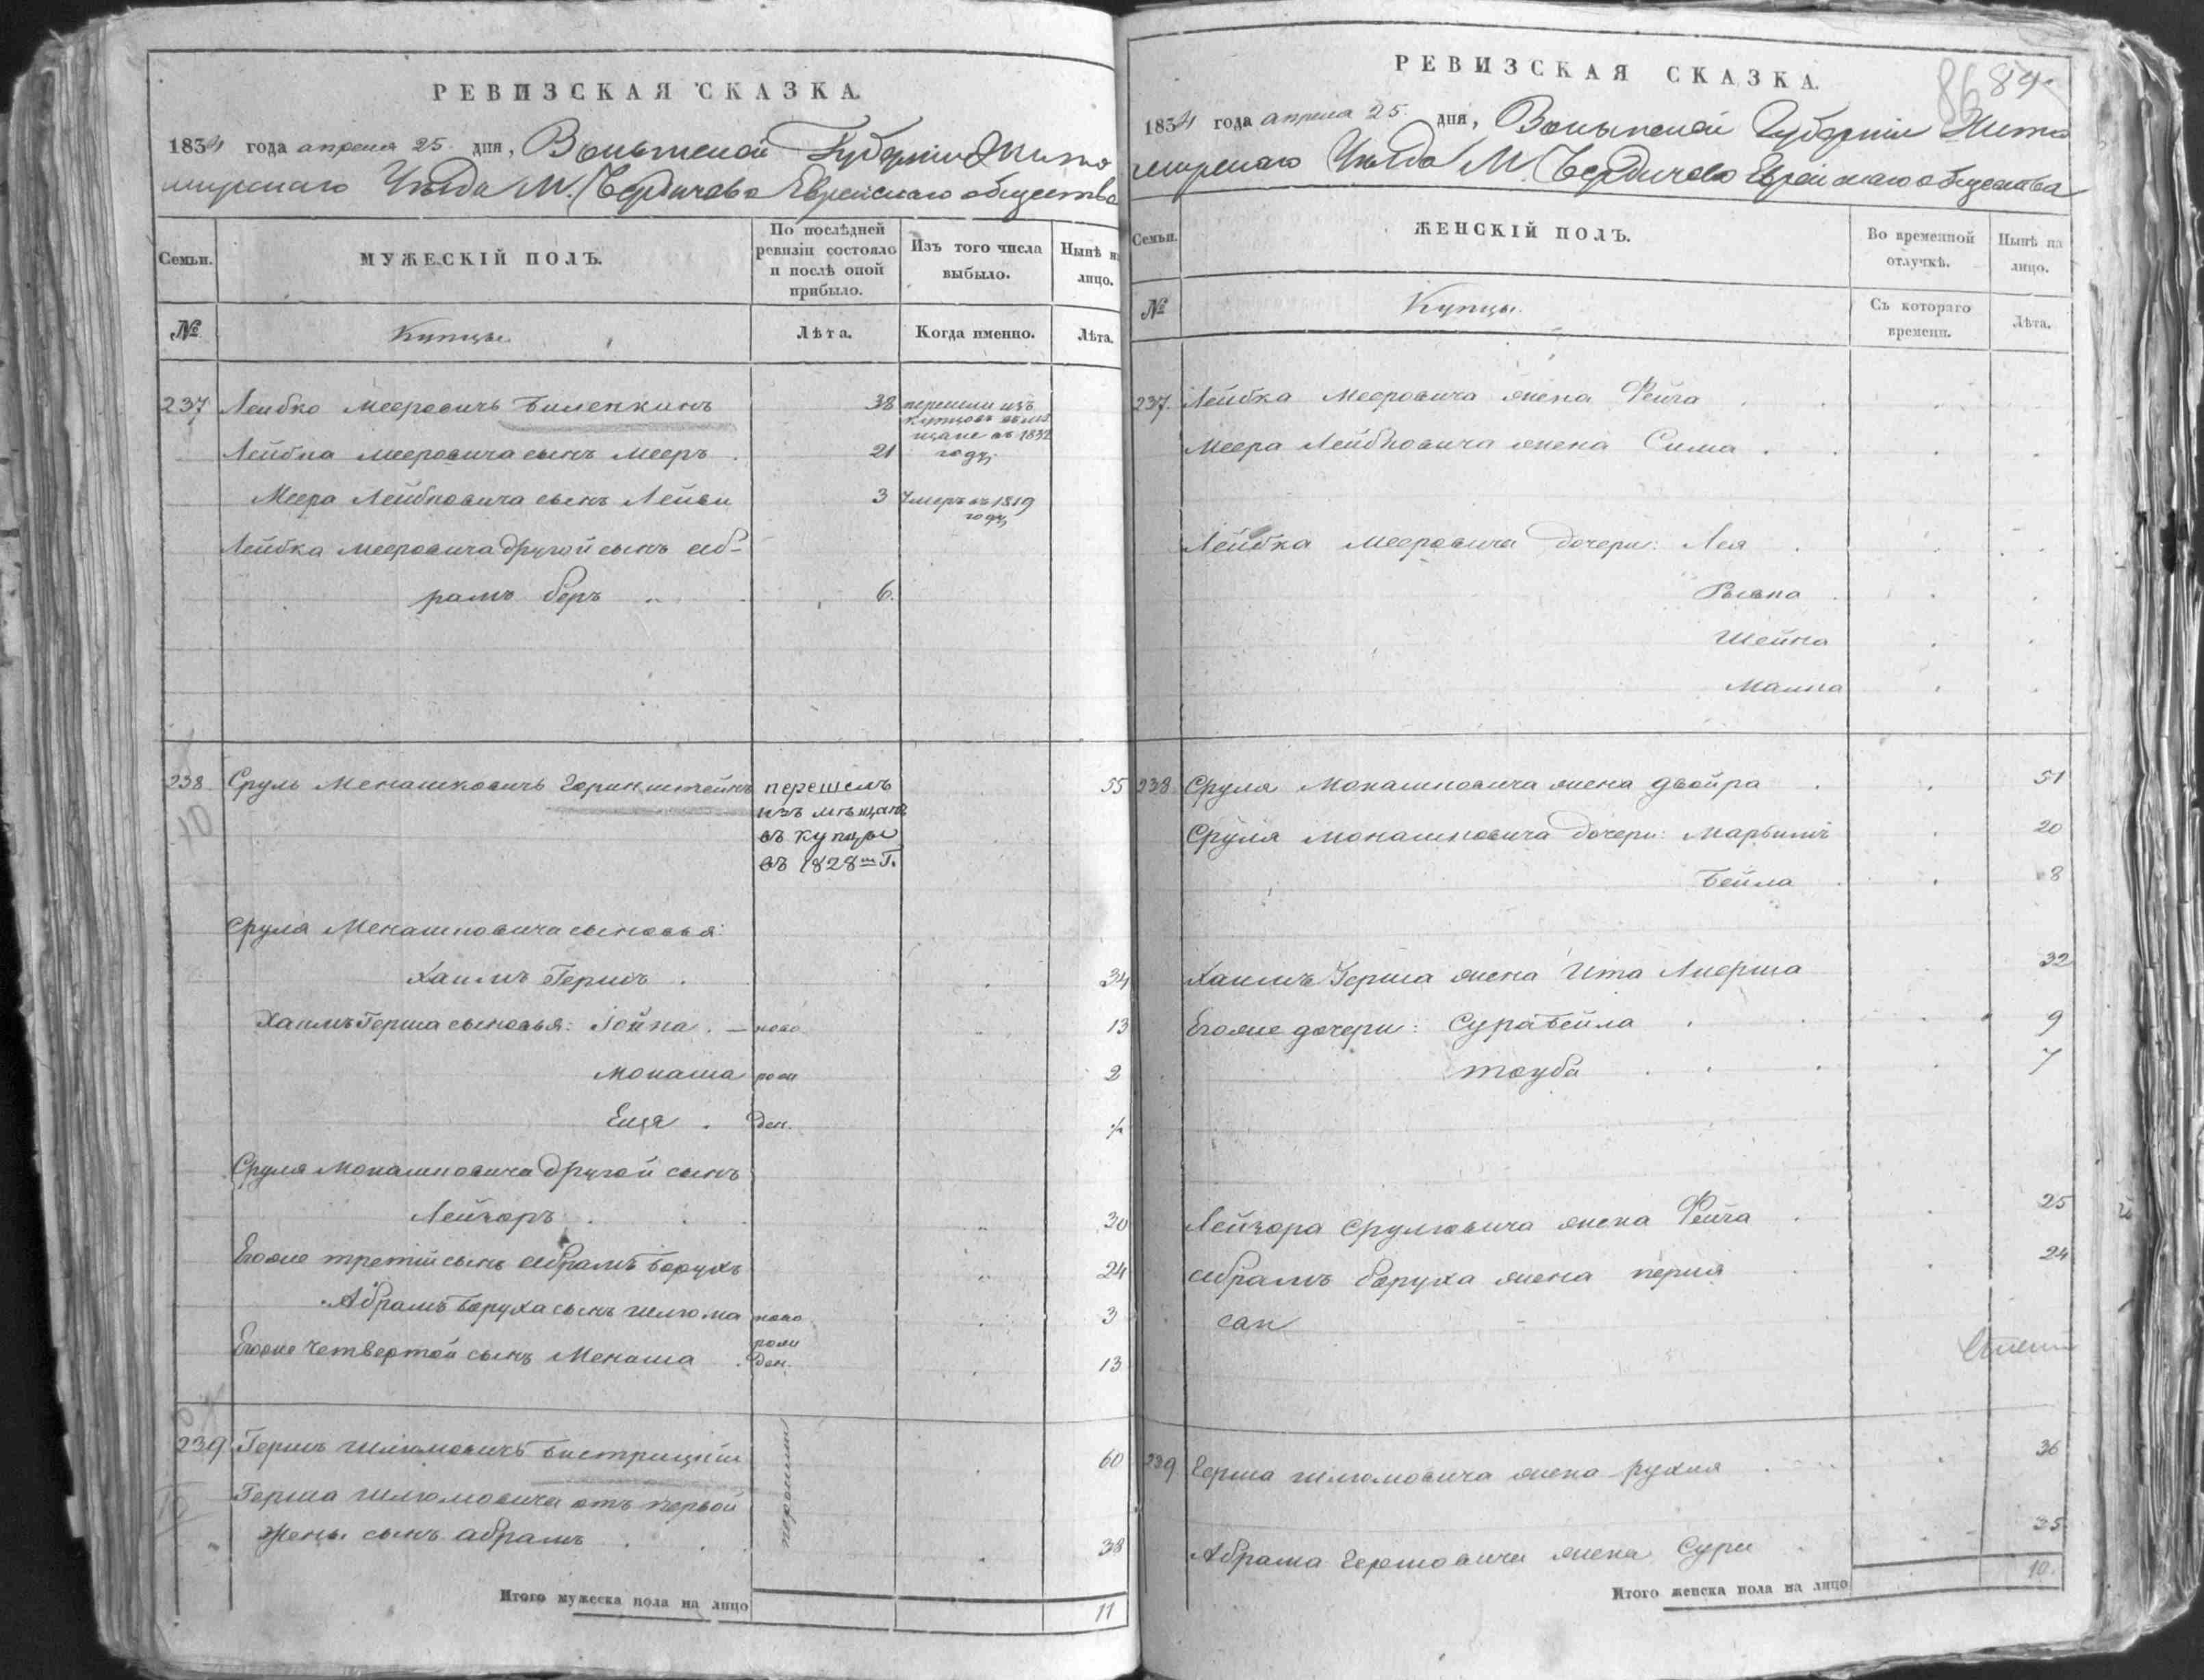 РЕВИЗСКАЯ СКАЗКА.
1834 года апреля 25 дня, Волынской Губернии Жито
мирскаго Уѣзда М. Бердичева Еврейскаго общества
Семьи.
МУЖЕСКІЙ ПОЛЪ.
По послѣдней
ревизіи состояло
и послѣ оной
прибыло.
Изъ того числа
выбыло.
Нынѣ на
лицо.
№
Купцы
Лѣта.
Когда именно.
Лѣта.
237 Лейбко Мееровичь Биленкинъ 38 перешли изъ
купцовъ въ мѣ
щане въ 1832
Лейбка Мееровича сынъ Мееръ 21 году
Меера Лейбковича сынъ 3 Умеръ въ 1819
году
Лейбка Мееровича другой сынъ Аб-
рамъ Беръ 6.
238 Сруль Менашковичь Горинштейнъ перешелъ 55
изъ мѣщанъ
въ купцы
въ 1828 Г.
Сруля Менашковича сыновья:
Хаимъ Гершъ 34
Хаимъ Герша сыновья: Іойна ново 13
Монаша рож 2
Еща ден. ½
Сруля Монашковича другой сынъ
Лейзоръ 30
Егоже третій сынъ Абрамъ Борухъ 24
Абрамъ Боруха сынъ Шлюма ново 3
рож
Егоже четвертой сынъ Менаша ден. 13
239 Гершъ Шлюмовичъ Бистрицкій 60
Герша Шлюмовича отъ первой
жены сынъ Абрамъ 38
Итого мужеска пола на лицо 11
РЕВИЗСКАЯ СКАЗКА.
86 84
1834 года апреля 25 дня, Волынской Губерніи Жито
мирскаго Уѣзда М. Бердичева Еврейскаго общества
Семьи.
ЖЕНСКІЙ ПОЛЪ.
Во временной
отлучкѣ.
Нынѣ на
лицо.
№
Купцы.
Съ котораго
времени.
Лѣта.
237. Лейбка Мееровича жена Фейга
Меера Лейбковича жена Сима
Лейбка Мееровича дочери: Лея
Рывка
Шейна
Малка
238 Сруля Монашковича жена Двойра 51
Сруля Монашковича дочери: Марьимъ 20
Бейла 8
Хаимъ Герша жена Ита 32
Егоже дочери: Сура Бейла 9
Тоуба 7
Лейзора Срулювича жена Фейга 25
Абрамъ Боруха жена Перля 24
239 Герша Шлюмовича жена Рухля 36
Абрама Гершовича жена Сури 35
Итого женска пола на лицо 10.